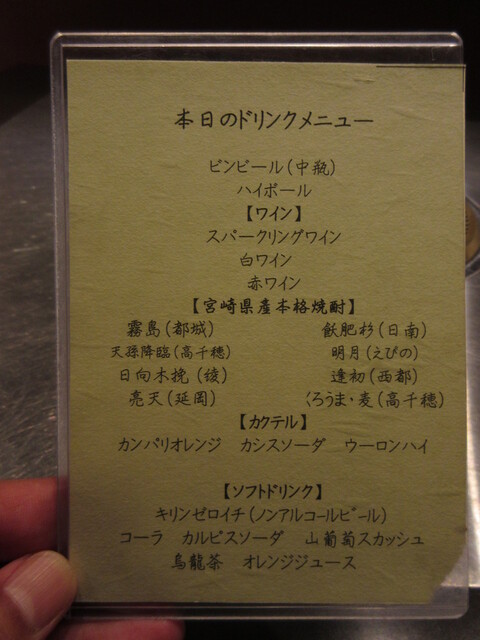 本日のドリンクメニュー
ビンビール(中瓶)
ハイボール
【ワイン】
スパークリングワイン
白ワイン
赤ワイン
【宮崎県産本格焼酎】
霧島(都城) 飫肥杉(日南)
天孫降臨(高千穂) 明月(えびの)
日向木挽(綾) 逢初(西都)
亮天(延岡) くろうま・麦(高千穂)
【カクテル】
カンパリオレンジ カシスソーダ ウーロンハイ
【ソフトドリンク】
キリンゼロイチ(ノンアルコールビール)
コーラ カルピスソーダ 山葡萄スカッシュ
烏龍茶 オレンジジュース